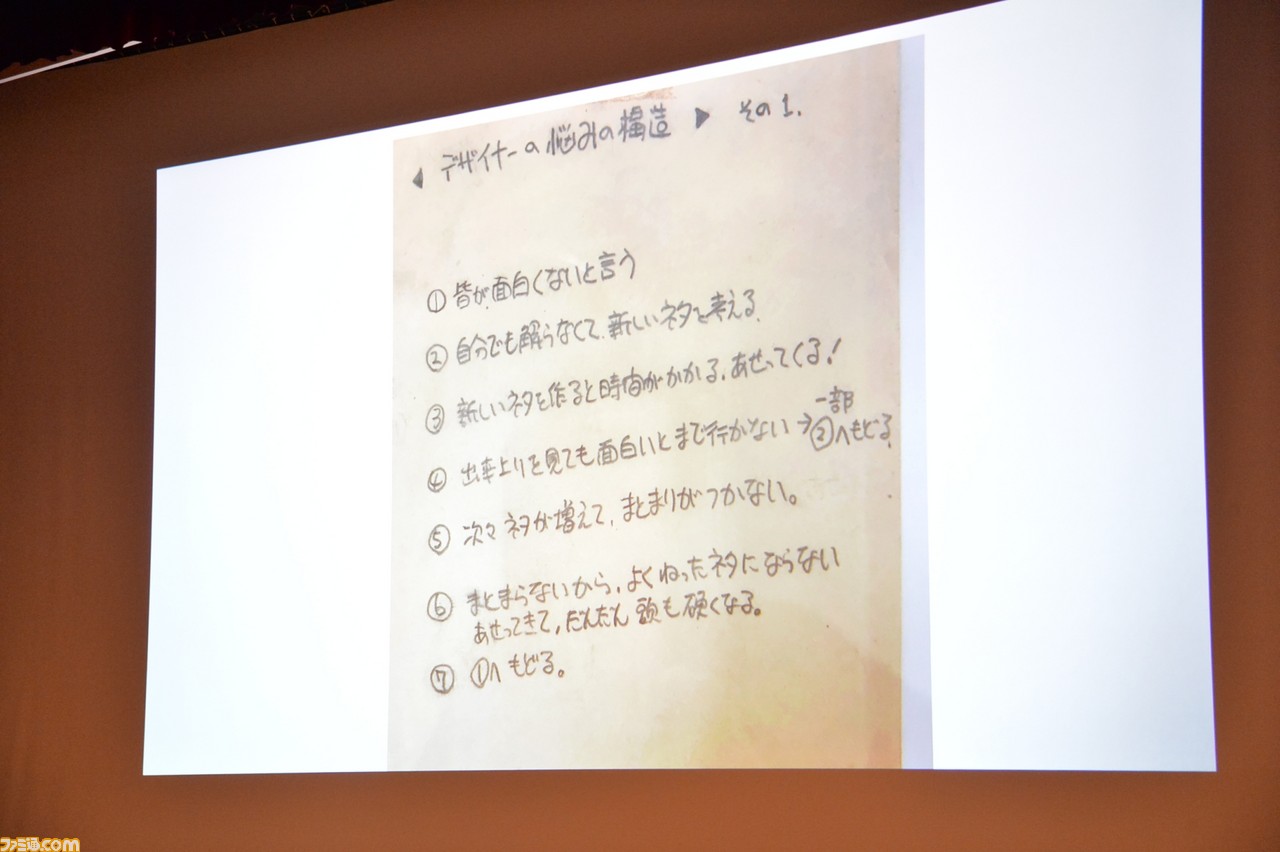 ◀ デザイナーの悩みの構造 ▶ その1.
① 皆が面白くないと言う
② 自分でも解らなくて、新しいネタを考える.
③ 新しいネタを作ると時間がかかる、あせってくる!
④ 出来上りを見ても面白いとまで行かない → 一部
②へもどる.
⑤ 次々ネタが増えて、まとまりがつかない。
⑥ まとまらないから、よくねったネタにならない
あせってきて、だんだん頭も硬くなる。
⑦ ①へもどる。
ファミ通.com